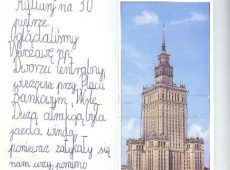 Kultury na 30
piętrze.
Oglądaliśmy
Warszawę np.
Dworzec Centralny,
wieżowce przy Placu
Bankowym, Wisłę.
Dużą atrakcją była
jazda windą,
ponieważ zatykały się
nam uszy, pomimo